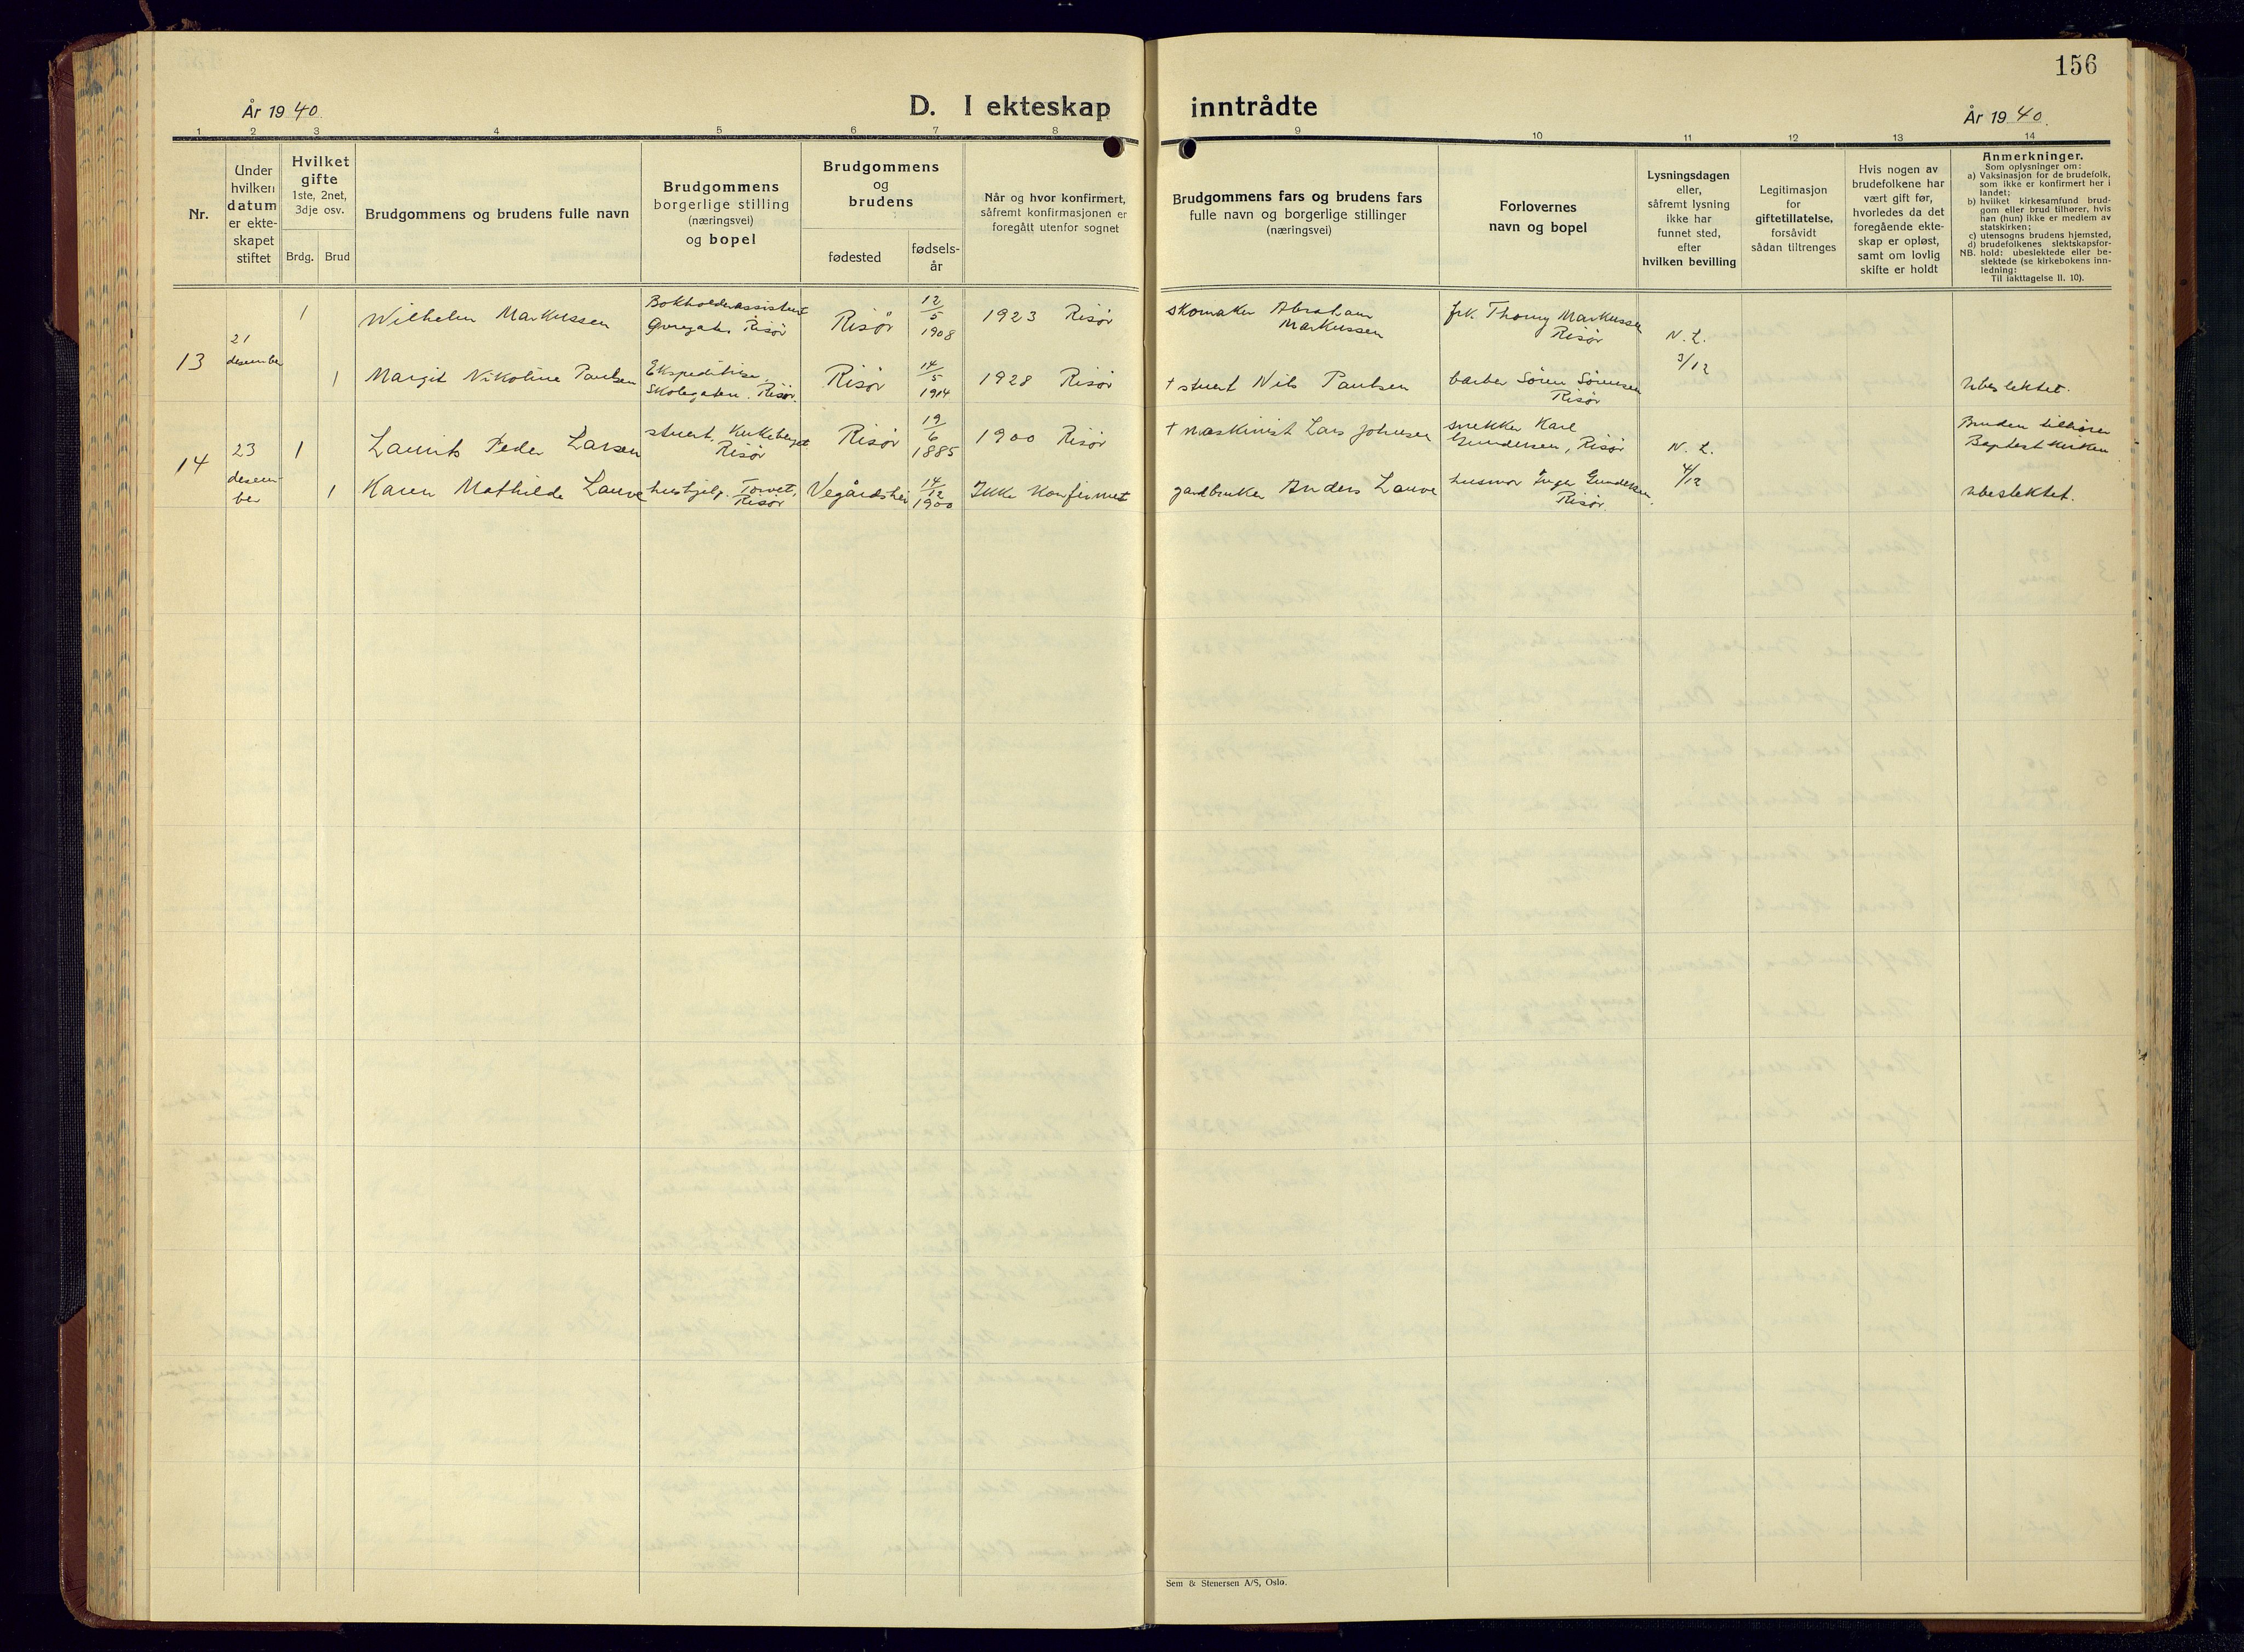 156
År 1940.
D. I ekteskap inntrådte
År 1940.
1 2 3 4 5 6 7 8 9 10 11 12 13 14
Nr.
Under
hvilken
datum
er ekte-
skapet
stiftet
Hvilket
gifte
1ste, 2net,
3dje osv.
Brdg. Brud
Brudgommens og brudens fulle navn
Brudgommens
borgerlige stilling
(næringsvei)
og bopel
Brudgommens
og
brudens
fødested
fødsels-
år
Når og hvor konfirmert,
såfremt konfirmasjonen er
foregått utenfor sognet
Brudgommens fars og brudens fars
fulle navn og borgerlige stillinger
(næringsvei)
Forlovernes
navn og bopel
Lysningsdagen
eller,
såfremt lysning
ikke har
funnet sted,
efter
hvilken bevilling
Legitimasjon
for
giftetillatelse,
forsåvidt
sådan tiltrenges
Hvis nogen av
brudefolkene har
vært gift før,
hvorledes da det
foregående ekte-
skap er opløst,
samt om lovlig
skifte er holdt
Anmerkninger.
Som oplysninger om:
a) Vaksinasjon for de brudefolk,
som ikke er konfirmert her i
landet;
b) hvilket kirkesamfund brud-
gom eller brud tilhører, hvis
han (hun) ikke er medlem av
statskirken;
c) utensogns brudens hjemsted,
d) brudefolkenes slektskapsfor-
NB. hold: ubeslektede eller be-
slektede (se kirkebokens inn-
ledning:
Til iakttagelse II. 10).
13
21
desember
1
Wilhelm Markussen
Bokholderassistent
Øvregate Risør
Risør
12/5
1908
1923 Risør
skomaker Abraham
Markussen
frk. Thorny Markussen
Risør
N. L.
3/12
1
Margit Nikoline Paulsen
Ekspeditrise
Skolegaten. Risør.
Risør
14/5
1914
1928 Risør
† stuert Nils Paulsen
barber Søren Sørensen
Risør
Ubeslektet.
14
23
desem-
ber
1
Laurits Peder Larsen
stuert, Kirkeberget
Risør
Risør
19/6
1885
1900 Risør
† maskinist Lars Johnsen
snekker Karl
Gundersen, Risør
N. L.
4/12
Bruden tilhører
Baptestkirken
1
Karen Mathilde Lauve
hushjelp. Torvet,
Risør
Vegårdshei
14/12
1900
Ikke konfirmert
gardbruker Anders Lauve
husmor Inger Gundersen
Risør.
ubeslektet.
Sem & Stenersen A/S, Oslo.